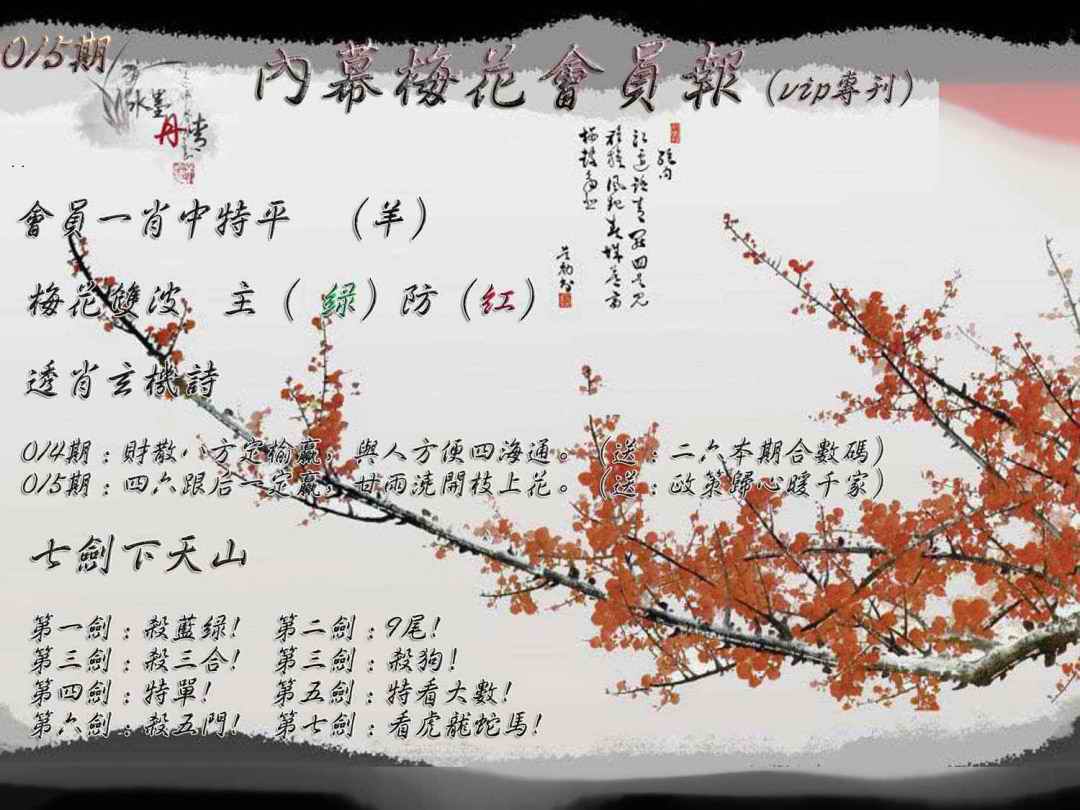 015期
內幕梅花會員報(vip專刊)
水墨
丹青
會員一肖中特平 (羊)
梅花雙波 主(绿)防(红)
透肖玄機詩
014期:財散八方定榆贏,與人方便四海通。(送:二六本期合數碼)
015期:四六跟后一定贏,甘雨澆開枝上花。(送:政策歸心暖千家)
七劍下天山
第一劍:殺藍绿! 第二劍:9尾!
第三劍:殺三合! 第三劍:殺狗!
第四劍:特單! 第五劍:特看大數!
第六劍:殺五門! 第七劍:看虎龍蛇馬!